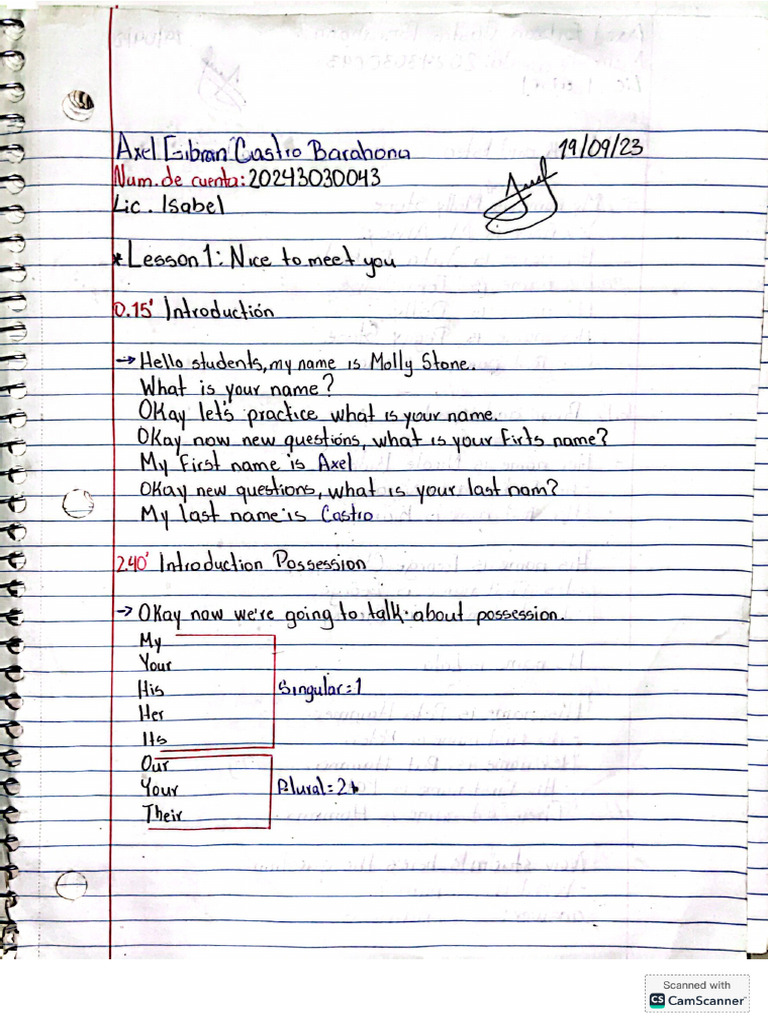 Axel Gibran Castro Barahona 19/09/23
Num. de cuenta: 20243030043
Lic. Isabel
* Lesson 1: Nice to meet you
0.15' Introduction
→ Hello students, my name is Molly Stone.
What is your name?
Okay let's practice what is your name.
Okay now new questions, what is your firts name?
My first name is Axel
Okay new questions, what is your last nam?
My last name is Castro
2.40' Introduction Possession
→ Okay now we're going to talk about possession.
My
Your
His Singular=1
Her
Its
Our
Your Plural=2+
Their
Scanned with
CS CamScanner